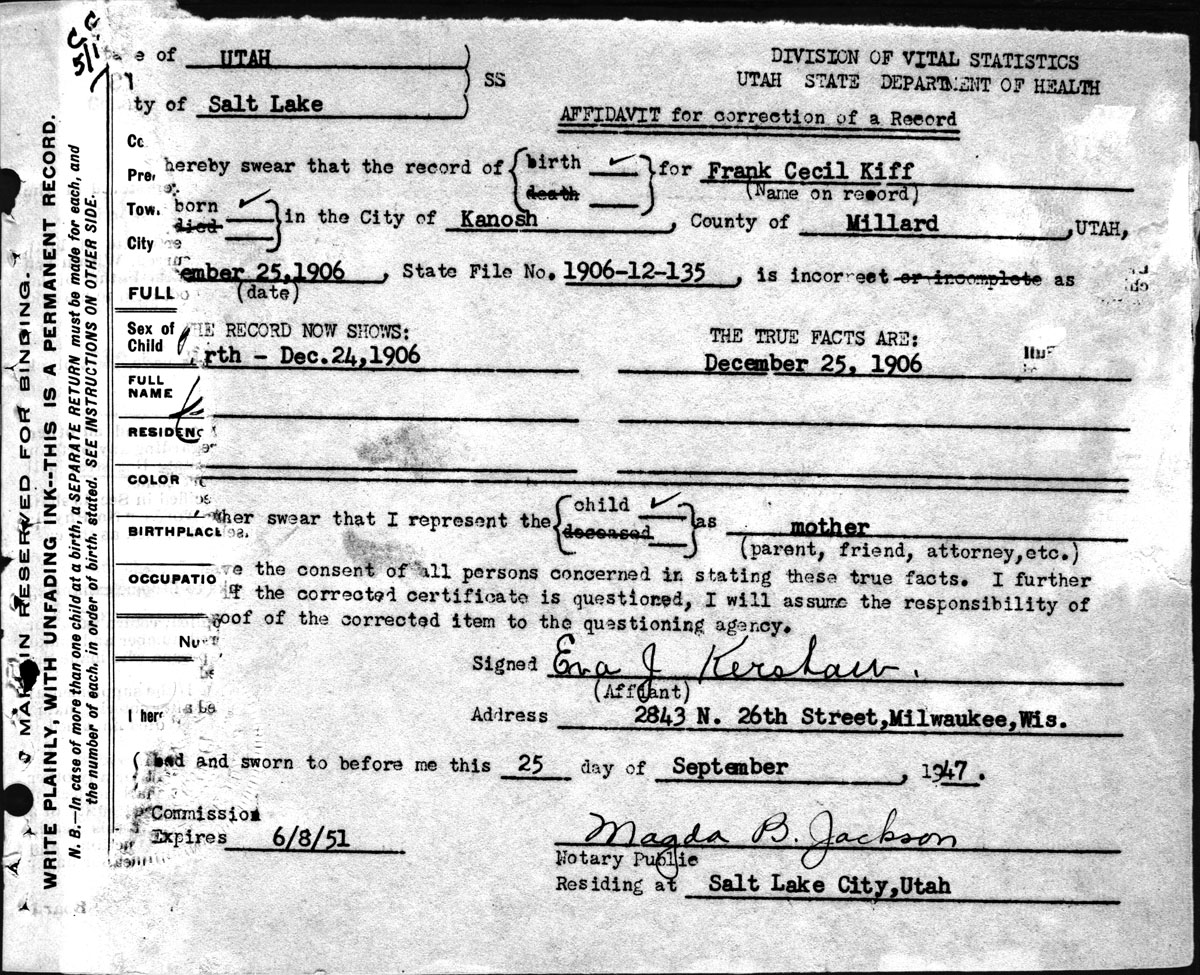 C C
5/1
e of UTAH
SS
ty of Salt Lake
DIVISION OF VITAL STATISTICS
UTAH STATE DEPARTMENT OF HEALTH
AFFIDAVIT for correction of a Record
hereby swear that the record of { birth ✓ death } for Frank Cecil Kiff
(Name on record)
born ✓ died } in the City of Kanosh, County of Millard, UTAH,
ember 25,1906, State File No. 1906-12-135, is incorrect or incomplete as
(date)
HE RECORD NOW SHOWS:
THE TRUE FACTS ARE:
rth - Dec.24,1906
December 25, 1906
her swear that I represent the { child ✓ deceased } as mother
(parent, friend, attorney,etc.)
ve the consent of all persons concerned in stating these true facts. I further
if the corrected certificate is questioned, I will assume the responsibility of
oof of the corrected item to the questioning agency.
Signed Eva J Kershaw.
(Affiant)
Address 2843 N. 26th Street,Milwaukee,Wis.
bed and sworn to before me this 25 day of September, 1947.
Commission
Expires 6/8/51
Magda B. Jackson
Notary Public
Residing at Salt Lake City,Utah
Co
Pre
Tow
City
FULL
Sex of
Child
FULL
NAME
RESIDENC
COLOR
BIRTHPLACE
OCCUPATIO
Nu
I her
MARGIN RESERVED FOR BINDING.
WRITE PLAINLY, WITH UNFADING INK--THIS IS A PERMANENT RECORD.
N. B.—In case of more than one child at a birth, a SEPARATE RETURN must be made for each, and
the number of each, in order of birth, stated. SEE INSTRUCTIONS ON OTHER SIDE.